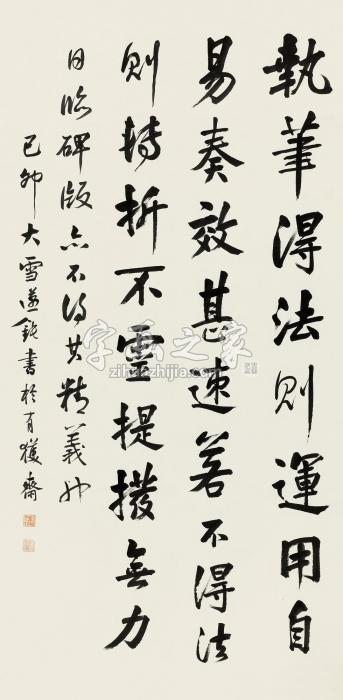 執筆得法則運用自
易奏效甚速若不得法
則轉折不靈提撥無力
日臨碑版亦不得其精義也
己卯大雪鈍書於獲齋
字画之家
zihuazhijia.com